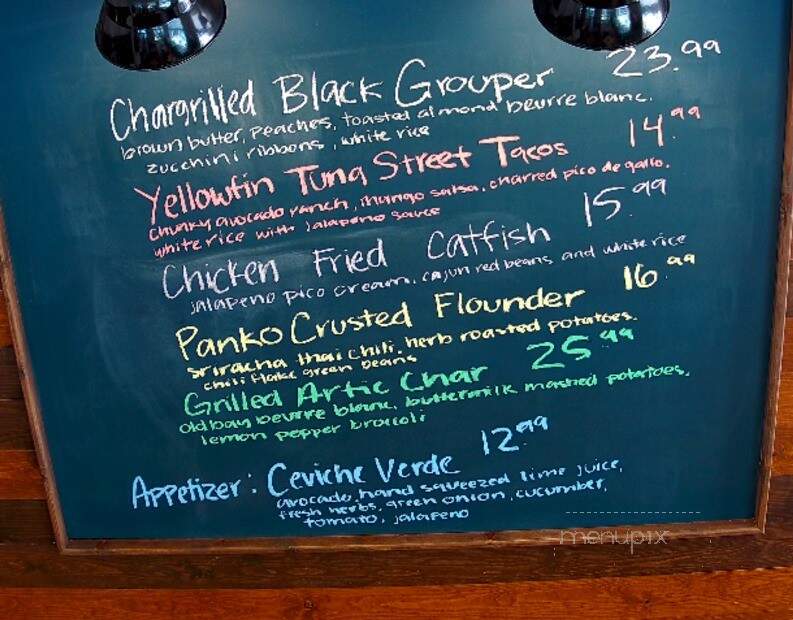 Chargrilled Black Grouper 23.99
brown butter, peaches, toasted almond beurre blanc.
zucchini ribbons, white rice
Yellowfin Tuna Street Tacos 14.99
chunky avocado ranch, mango salsa, charred pico de gallo,
white rice with jalapeno sauce
Chicken Fried Catfish 15.99
jalapeno pico cream, cajun red beans and white rice
Panko Crusted Flounder 16.99
sriracha thai chili, herb roasted potatoes.
chili flake green beans
Grilled Artic Char 25.99
old bay beurre blanc, buttermilk mashed potatoes,
lemon pepper brocoli
Appetizer: Ceviche Verde 12.99
avocado, hand squeezed lime juice,
fresh herbs, green onion, cucumber,
tomato, jalapeno
menupix